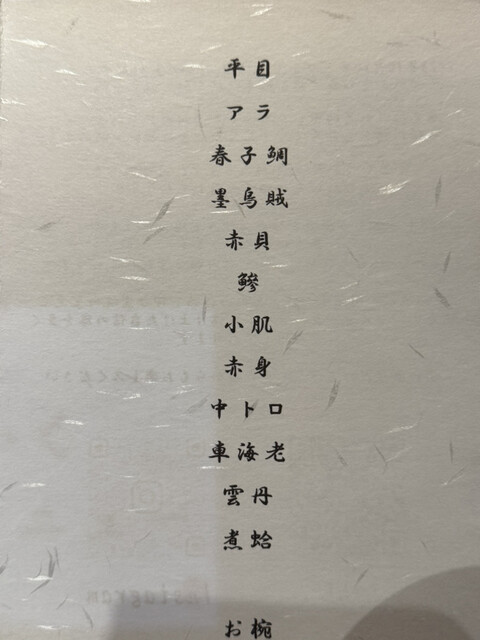 平目
アラ
春子鯛
墨烏賊
赤貝
鰺
小肌
赤身
中トロ
車海老
雲丹
煮蛤
お椀
Instagram